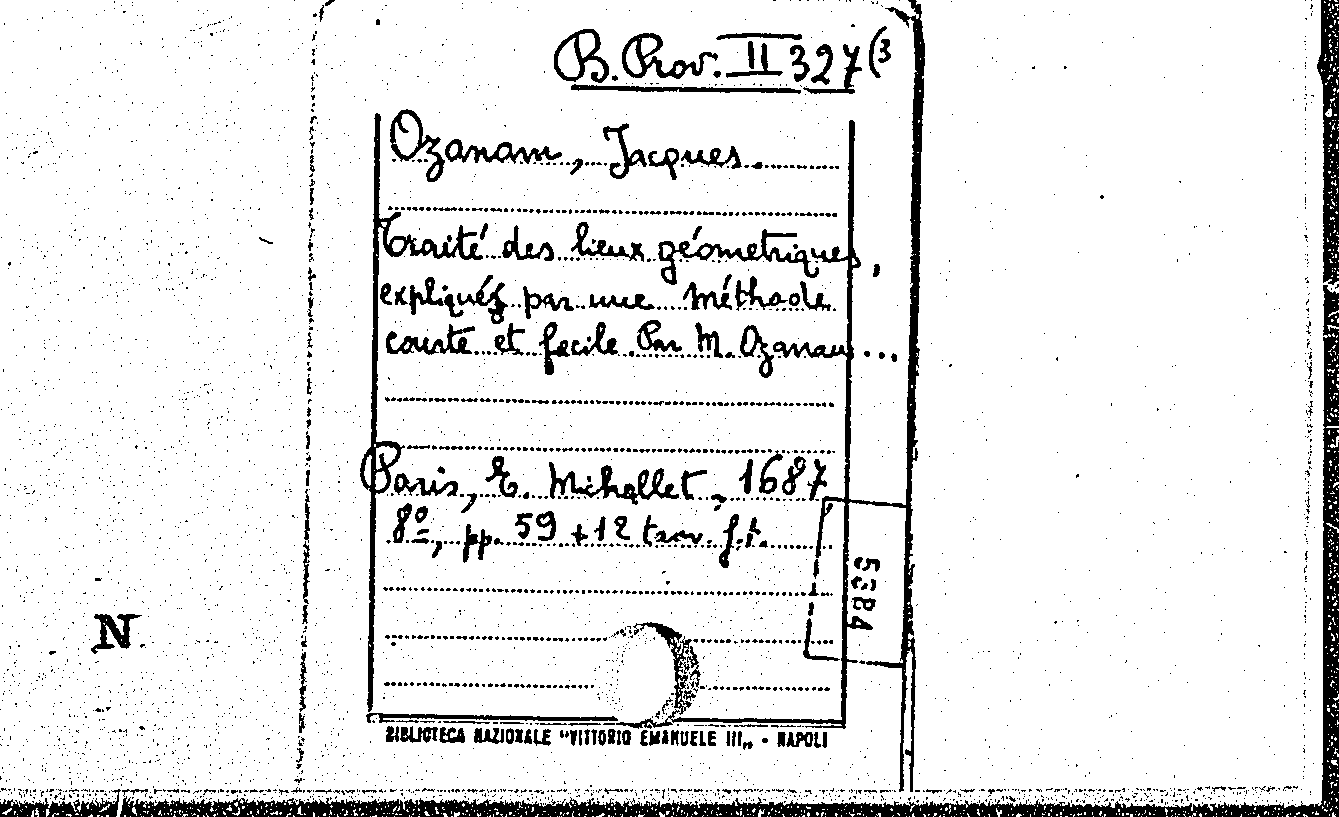 B. Prov. II 327(3
Ozanam, Jacques.
Traité des lieux géometriques,
expliqués par une méthode
courte et facile. Par M. Ozanam...
Paris, E. Michallet, 1687
8º, pp. 59 + 12 tav. f.t.
5384
N
BIBLIOTECA NAZIONALE "VITTORIO EMANUELE III„ - NAPOLI